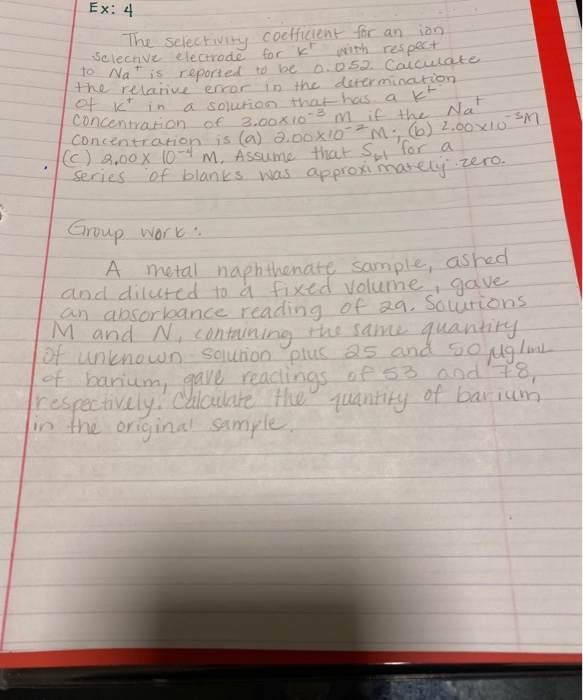 Ex: 4
The selectivity coefficient for an ion
selective electrode for K⁺ with respect
to Na⁺ is reported to be 0.052. Calculate
the relative error in the determination
of K⁺ in a solution that has a K⁺
concentration of 3.00x10⁻³ M if the Na⁺
concentration is (a) 2.00x10⁻² M; (b) 2.00x10⁻³M
(c) 2.00 x 10⁻⁴ M. Assume that Sbl for a
series of blanks was approximately zero.
Group work:
A metal naphthenate sample, ashed
and diluted to a fixed volume, gave
an absorbance reading of 29. Solutions
M and N, containing the same quantity
of unknown solution plus 25 and 50 µg/mL
of barium, gave readings of 53 and 78,
respectively. Calculate the quantity of barium
in the original sample.